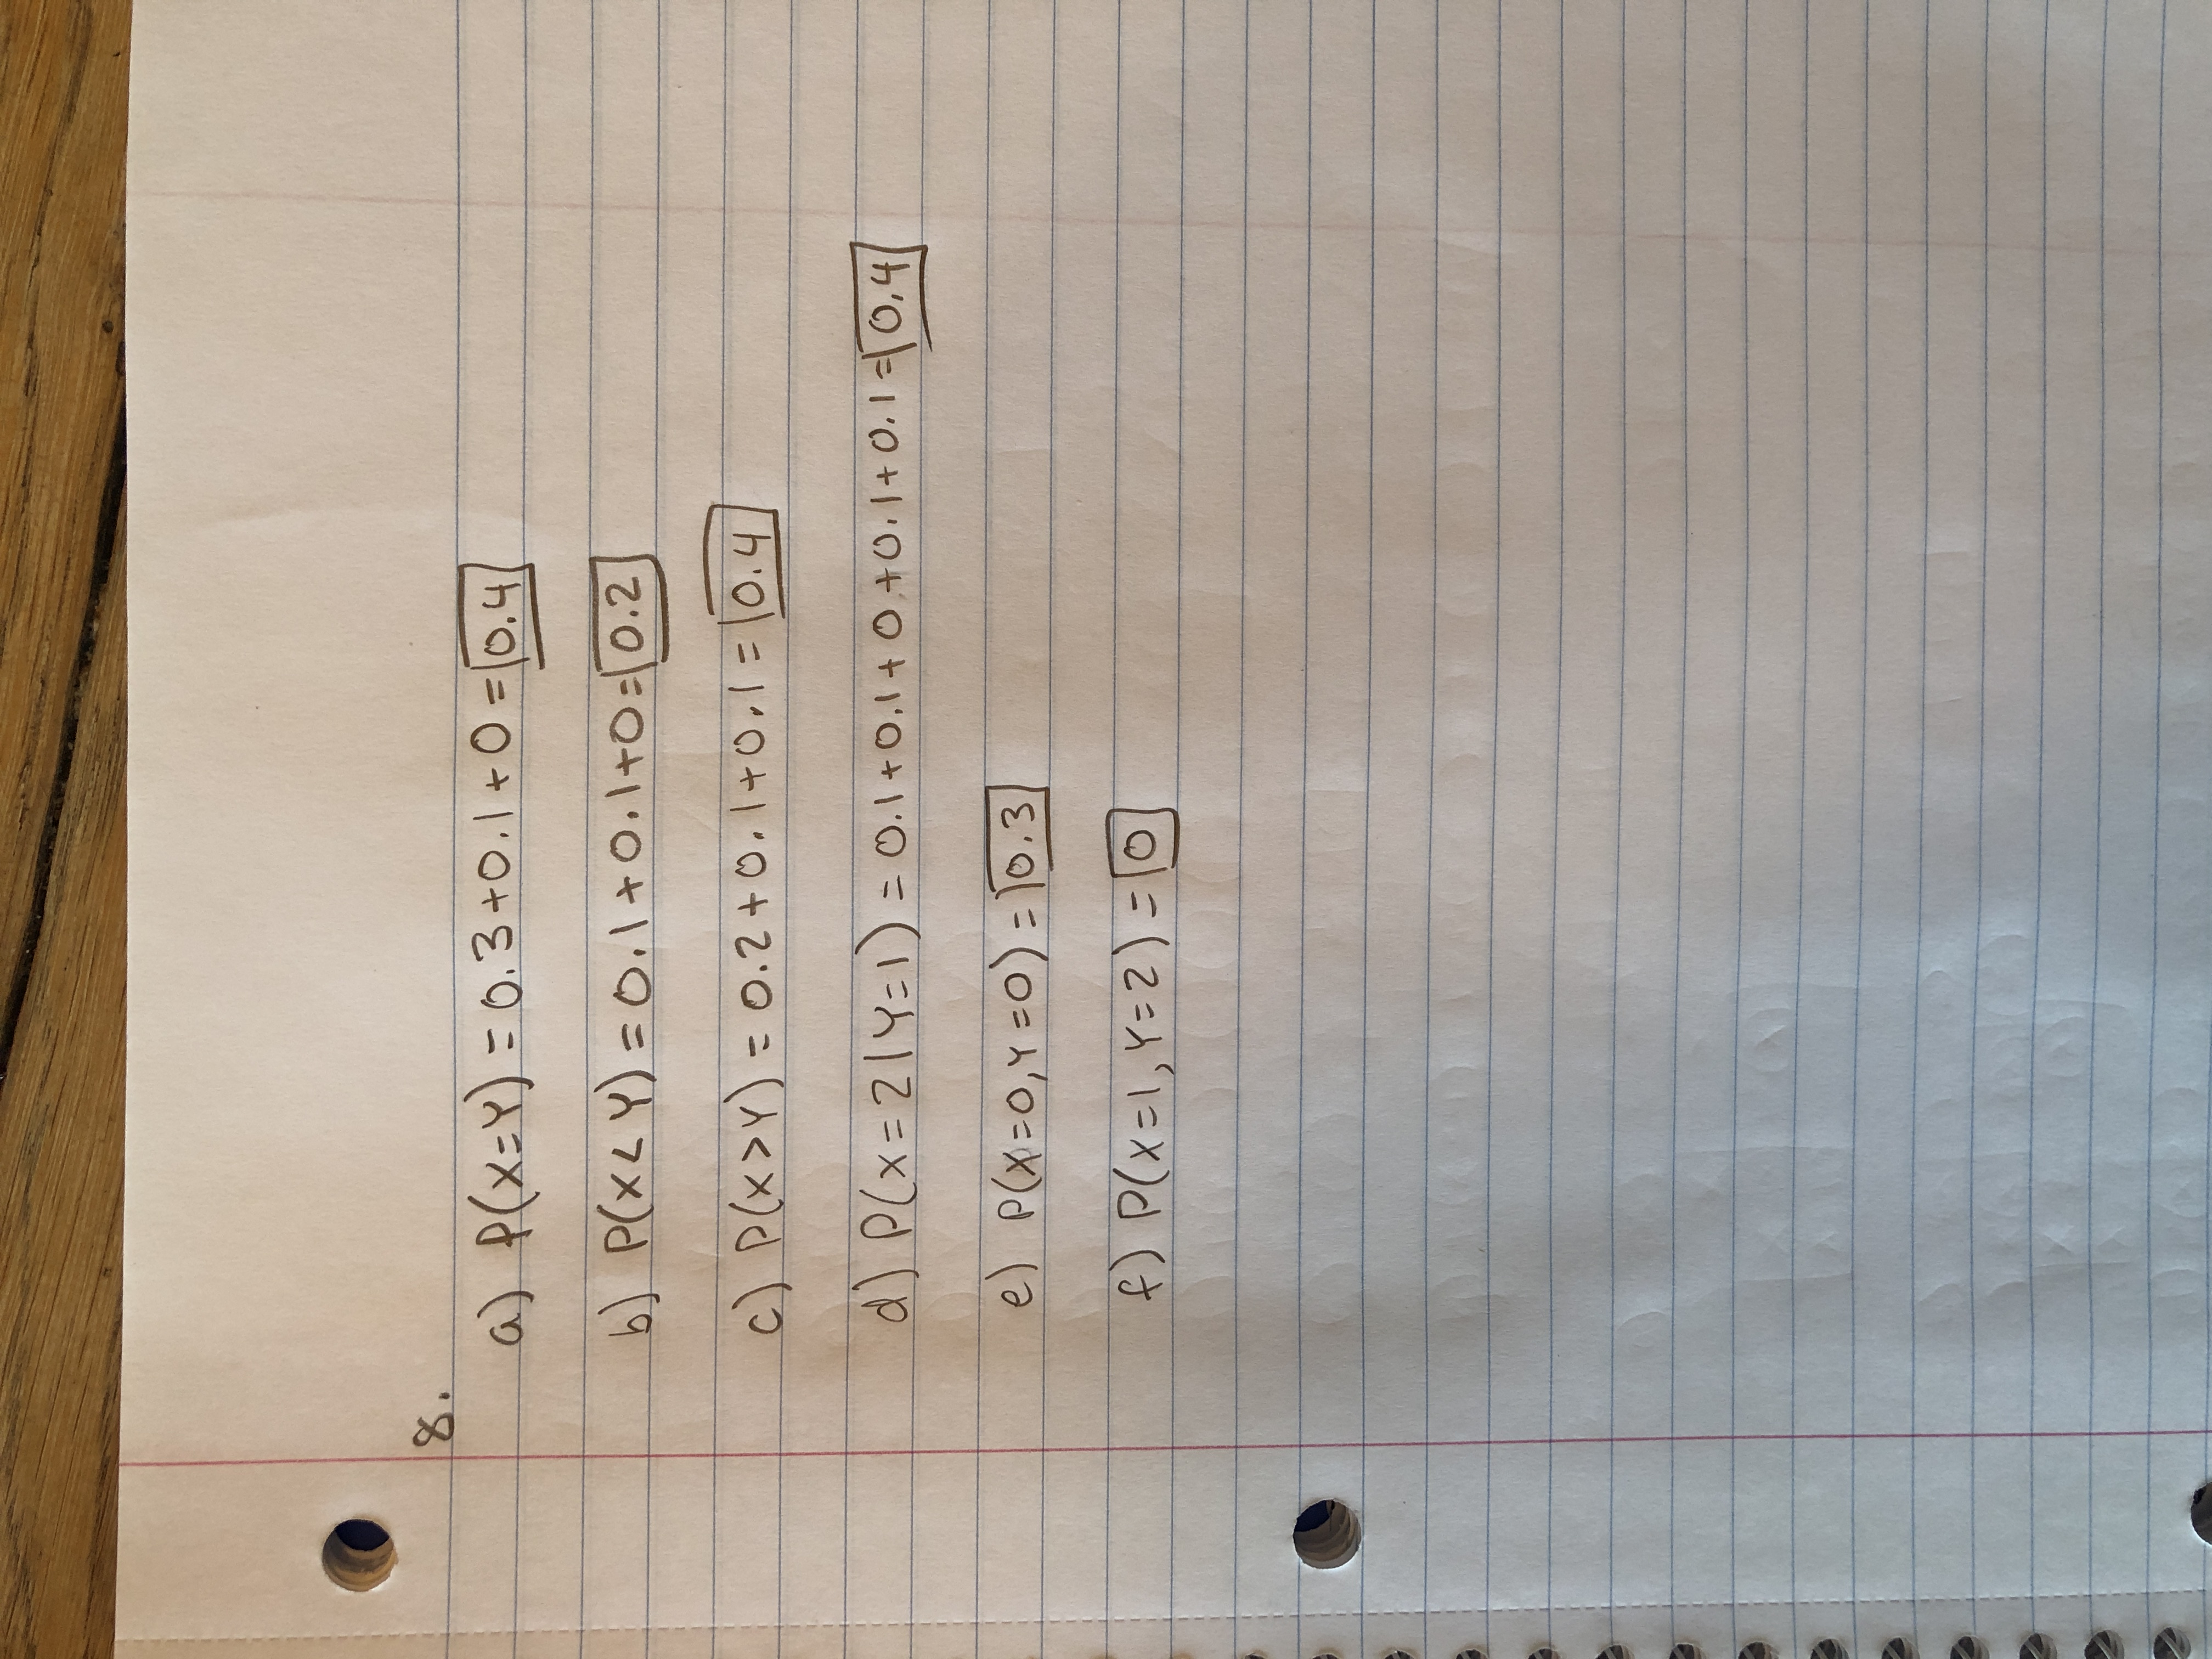 8.
a) P(X=Y) = 0.3+0.1+0 = 0.4
b) P(X<Y) = 0.1+0.1+0= 0.2
c) P(X>Y) = 0.2+0.1+0.1 = 0.4
d) P(X=2|Y=1) = 0.1+0.1+0+0.1+0.1= 0.4
e) P(X=0,Y=0) = 0.3
f) P(X=1,Y=2) = 0